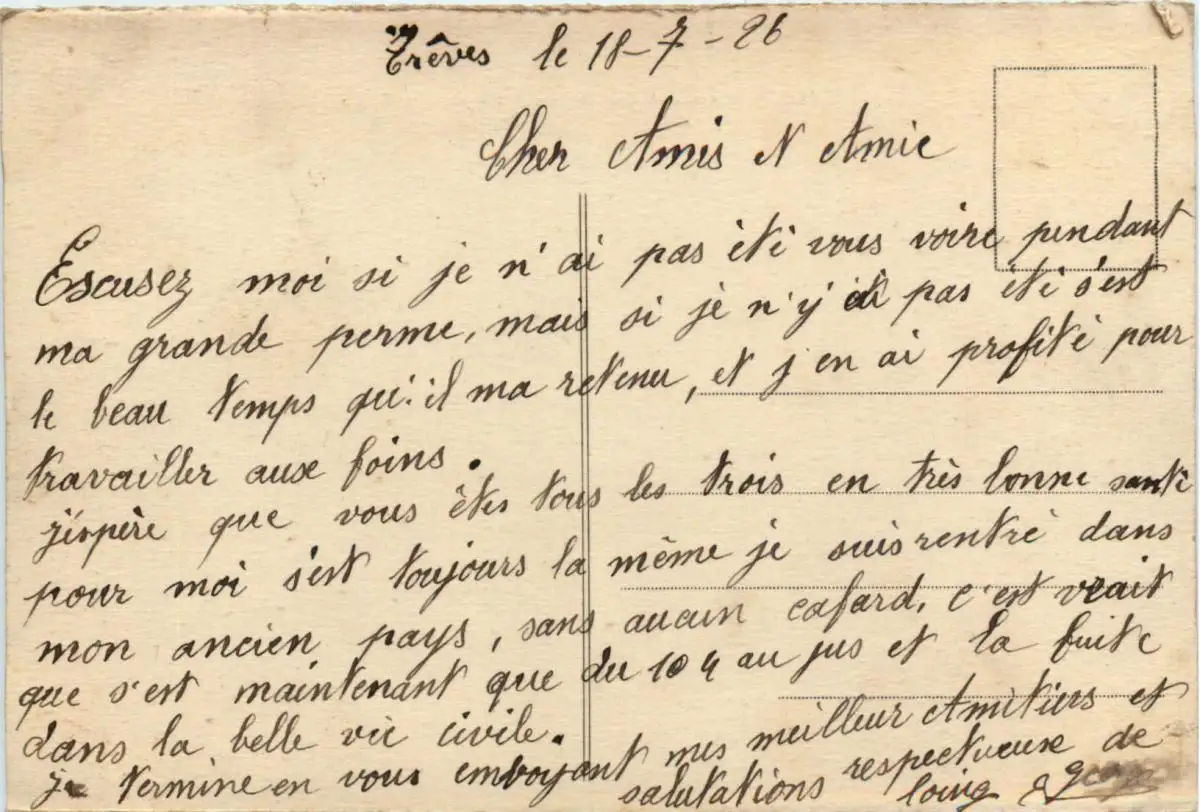 Trêves le 18-7-26
Cher Amis et Amie
Escusez moi si je n'ai pas été vous voire pendant
ma grande perme, mais si je n'y ai pas été s'est
le beau temps qu'il ma retenu, et j'en ai profité pour
travailler aux foins.
J'éspère que vous êtes tous les trois en très bonne santé
pour moi s'est toujours la même je suis rentré dans
mon ancien pays, sans aucun cafard, c'est vrait
que s'est maintenant que du 104 au jus et la fuite
dans la belle vie civile.
Je termine en vous emboyant mes meilleur Amitiers et
salutations respectueuse de
loing